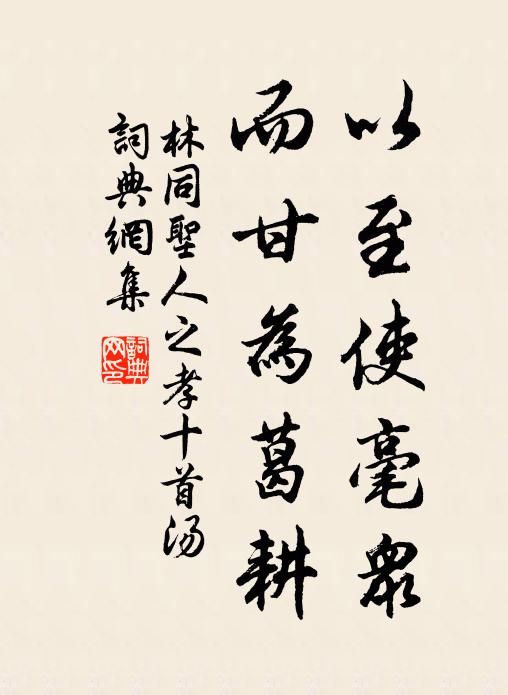 以至使毫眾
而甘為葛耕
林同聖人之孝十首湯
詞典網集
詞典網印